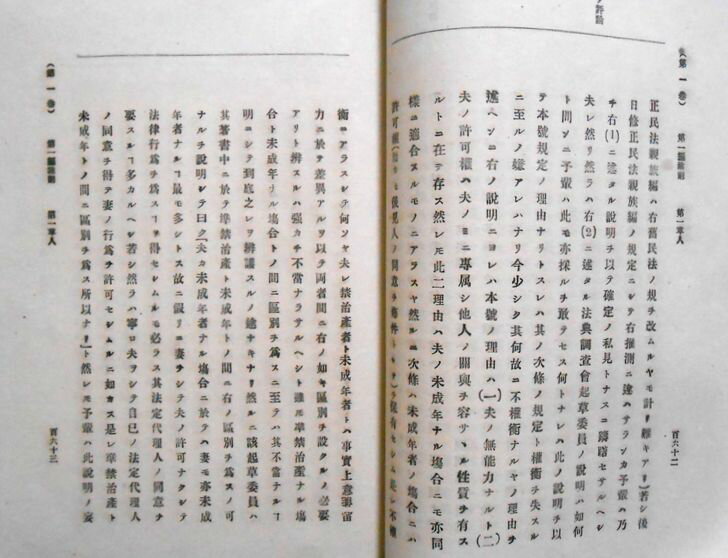 (第一巻) 第一編総則 第一章人 百六十二
正民法親族編ハ右舊民法ノ規チ改ムルヤモ計リ難キアリ)若シ後
日修正民法親族編ノ規定ニシテ右推測ニ違ハサランカ予輩ハ乃
チ右(1)ニ述タル説明チ以テ確定ノ私見トナスニ躊躇セサルヘシ
夫レ然リ然ラハ右(2)ニ述タル法典調査會起草委員ノ説明ハ如何
ト問ハンニ予輩ハ此モ亦採ルチ敢テセス何トナレハ此ノ説明チ以
テ本號規定ノ理由ナリトスレハ其ノ次條ノ規定ト權衡チ失スル
ニ至ルノ嫌アレハナリ今少シク其何故ニ不權衡ナルヤノ理由チ
述ヘンニ右ノ説明ニヨレハ本號ノ理由ハ(一)夫ノ無能力ナルト(二)
夫ノ許可權ハ夫ノミニ專属シ他人ノ關與チ容サヽル性質チ有ス
ルトニ在テ存ス然レモ此二理由ハ夫ノ未成年ナル塲合ニモ亦同
樣ニ適合スルモノニアラスヤ然ルニ次條ハ未成年者ノ塲合ニハ
許可權
後見人ノ同意チ
保有セシム是レ不權
(第一巻) 第一編総則 第一章人 百六十三
衡ニアラスシテ何ソヤ夫レ禁治産者ト未成年者トハ事實上意思
能力ニ於テ差異アルチ以テ両者間ニ右ノ如キ區別チ設クルノ必要
アリト辨スルハ強カチ不當ナラサルヘシト雖モ準禁治産ナル塲
合ト未成年ナル塲合トノ間ニ區別チ爲スニ至テハ其不當ナルヿ
明ニシテ到底之レチ辨護スルノ途ナキナリ然ルニ該起草委員ハ
其著書中ニ於テ準禁治産ト未成年トノ間ニ右ノ區別チ爲スノ可
ナルチ説明シテ曰ク「夫カ未成年者ナル塲合ニ於テハ妻モ亦未成
年者ナルヿ最モ多シトス故ニ假リニ妻チシテ夫ノ許可ナクシテ
法律行爲チ爲スヿチ得セシムルモ必ラス其法定代理人ノ同意チ
要スルヿ多カルヘシ若シ然ラハ寧ロ夫チシテ自己ノ法定代理人
ノ同意チ得テ妻ノ行爲チ許可セシムルニ如カス是レ準禁治産ト
未成年トノ間ニ區別チ爲ス所以ナリ」ト然レモ予輩ハ此説明ノ妄